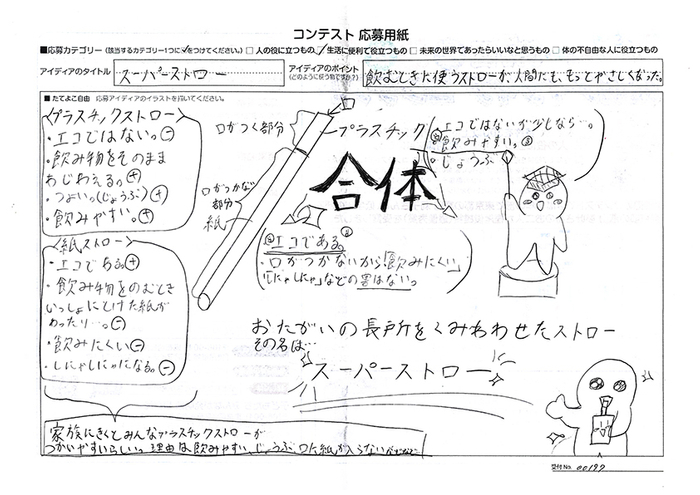 コンテスト 応募用紙
■応募カテゴリー（該当するカテゴリー1つに✓をつけてください。）□ 人の役に立つもの ✓ 生活に便利で役立つもの □ 未来の世界であったらいいなと思うもの □ 体の不自由な人に役立つもの
アイディアのタイトル
スーパーストロー
アイディアのポイント
（どのように使う物ですか？）
飲むときに使うストローが、人間にも、もっとやさしくなった。
■ たてよこ自由 応募アイディアのイラストを描いてください。
〈プラスチックストロー〉
・エコではない。⊖
・飲み物をそのまま
あじわえる。⊕
・つよい。(じょうぶ)⊕
・飲みやすい。⊕
〈紙ストロー〉
・エコである。⊕
・飲み物をのむとき
いっしょにとけた紙が
わったり…。⊖
・飲みにくい⊖
・しにゃしにゃになる。⊖
口がつく部分
プラスチック
口がつかない
部分
紙
・エコではないが少しなら…。
・飲みやすい。
・じょうぶ
合体
・エコである。
・口がつかないから「飲みにくい」
「しにゃしにゃ」などの害はないっ
おたがいの長所をくみわわせたストロー
その名は…
スーパーストロー
家族にきくとみんなプラスチックストローが
つかいやすいらしい。理由は、飲みやすい、じょうぶ、口に紙が入らない
受付No. 00197